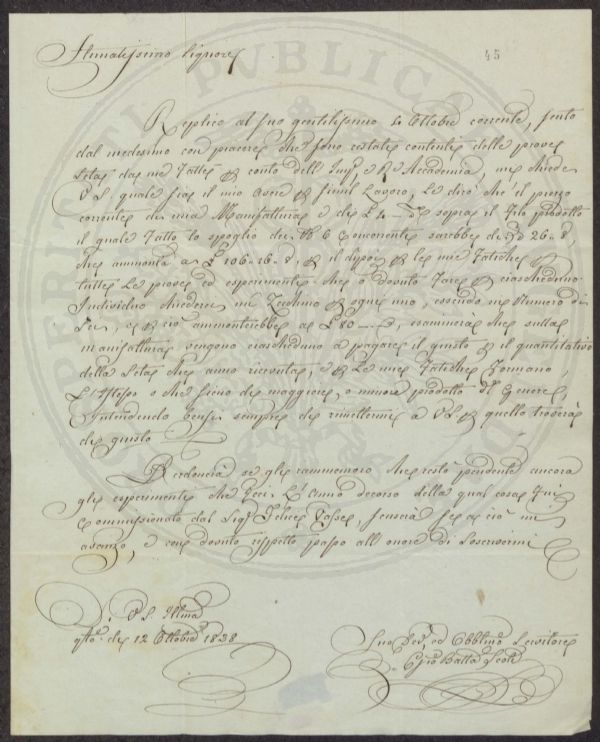 Illmatissimo Signore
45
Replico al suo gentilissimo 4 Ottobre corrente, sento
dal medesimo con piacere che sono restate contente delle prove
Seta da me fatte conto dell' Imp. Accademia, mi chiede
V S. quale sia il mio avere simil Lavoro, Le dirò che il prezzo
corrente di mia Manifattura è di L 4 sopra il filo prodotto
il quale fatto lo spoglio 6 concorrenti sarebbe di 26 8
che ammonta a L 106 16 8, il di più le mie fatiche
tutte Le prove ed esperimenti che ò dovuto fare ciascheduno
Individuo chiedere un Zecchino ogni uno, essendo Numero di
Sei, e ciò ammonterebbe a L 80, esaminerà che sulla
manifattura vengono ciascheduno a pagare il giusto il quantitativo
della Seta che anno ricevuta, Le mie fatiche formano
L'istesso o che siano di maggiore, o minore prodotto Genere,
Intendendo sempre di rimettermi a V S quello troverà
di giusto
se gli rammemoro che restò pendente ancora
gli esperimenti che feci L'Anno decorso della qual cosa fui
Commissionato dal Sig. Felice, senserà se a ciò mi
avanzo, e con dovuto rispetto passo all' onore di Soscrivermi
D. V S. Illma
di 12 Ottobre 1838
Suo ed Obblmo Servitore
Gio Batta
PUBLICA